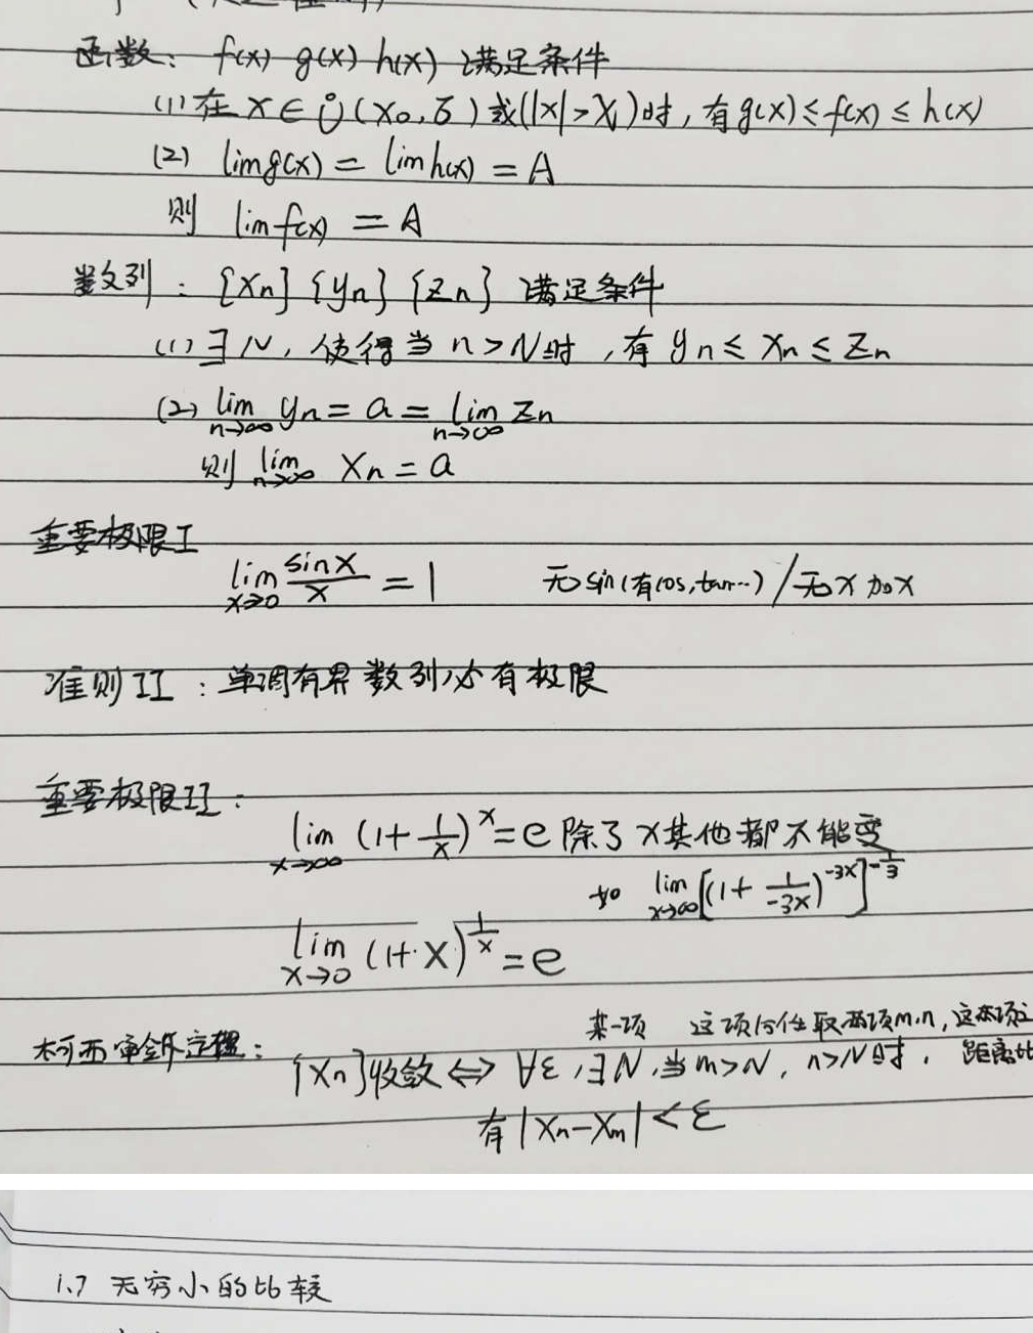 函数: f(x) g(x) h(x) 满足条件
(1) 在 x∈Ů(x₀,δ) 或(|x|>X)时,有g(x)≤f(x)≤h(x)
(2) lim g(x) = lim h(x) = A
则 lim f(x) = A
数列: {xₙ} {yₙ} {zₙ} 满足条件
(1) ∃N, 使得当 n>N时,有 yₙ≤xₙ≤zₙ
(2) lim_{n→∞} yₙ = a = lim_{n→∞} zₙ
则 lim_{n→∞} xₙ = a
重要极限I
lim_{x→0} sinx/x = 1 无sin(有cos,tan…)/无x加x
准则II: 单调有界数列必有极限
重要极限II:
lim_{x→∞} (1+1/x)^x = e 除了x其他都不能变
如 lim_{x→∞} [(1+1/(-3x))^{-3x}]^{-1/3}
lim_{x→0} (1+x)^{1/x} = e
某一项 这项后任取两项m,n,这两项
柯西审敛原理: {xₙ}收敛 ⇔ ∀ε,∃N,当m>N, n>N时, 距离比
有|xₙ-xₘ|<ε
1.7 无穷小的比较